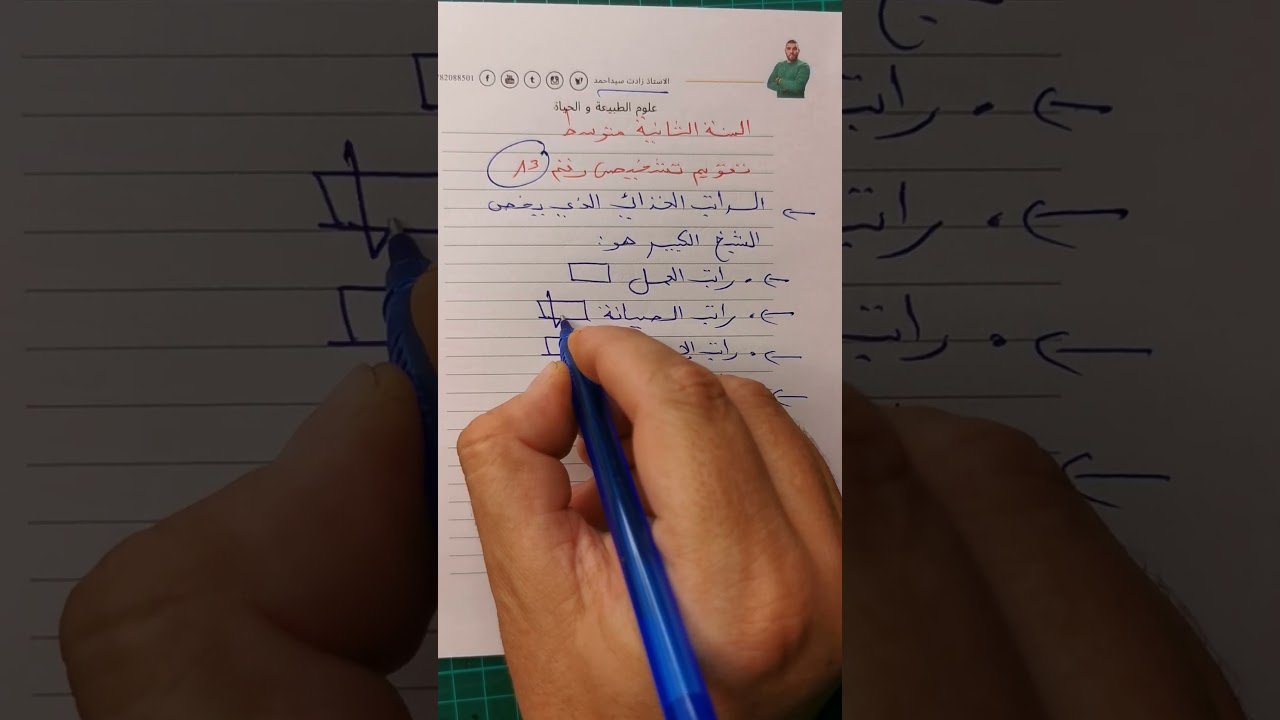 الاستاذ زادت سيداحمد
782088501
علوم الطبيعة و الحياة
السنة الثانية متوسط
تقويم تشخيص رقم
← الراتب الغذائي الذي يخص
الشيخ الكبير هو:
← • راتب العمل
← • راتب الصيانة
← • راتب